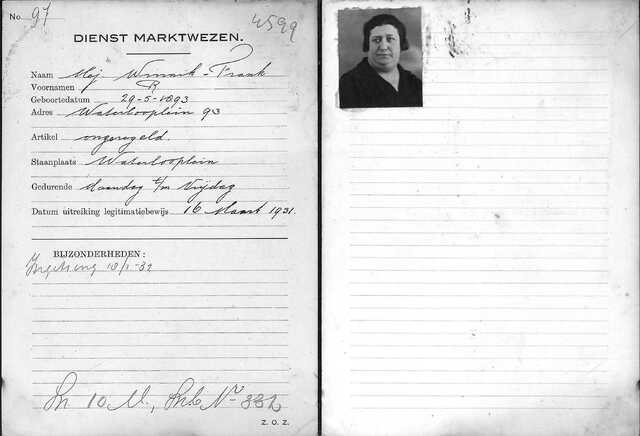 No. 97
4599
DIENST MARKTWEZEN.
Naam Mej Winnik - Frank
Voornamen R
Geboortedatum 29-5-1893
Adres Waterlooplein 93
Artikel ongeregeld.
Staanplaats Waterlooplein
Gedurende Maandag t/m Vrijdag
Datum uitreiking legitimatiebewijs 16 Maart 1931.
BIJZONDERHEDEN:
18/1-32
10 M, No 332
Z. O. Z.